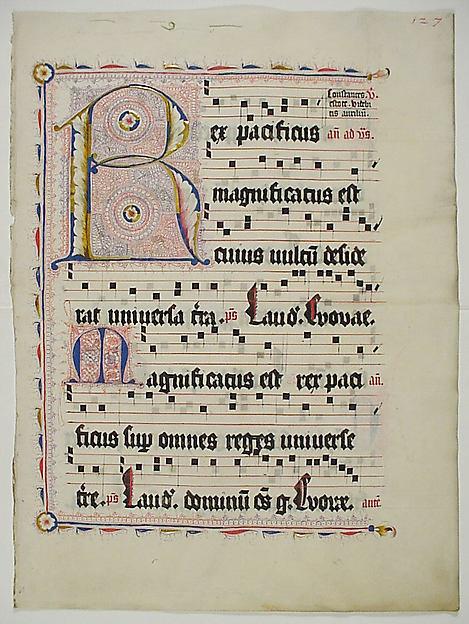 127
Constantes. V.
estote. videbi
tis auxiliū.
Rex pacificus an̄ ad v̄s.
magnificatus est
cuius vultū deside
rat universa t̄ra. ps Laud̄. Evovae.
Magnificatus est rex paci an̄.
ficus sup omnes reges universe
t̄re. ps Laud̄. dominū ōs g. Evovae.